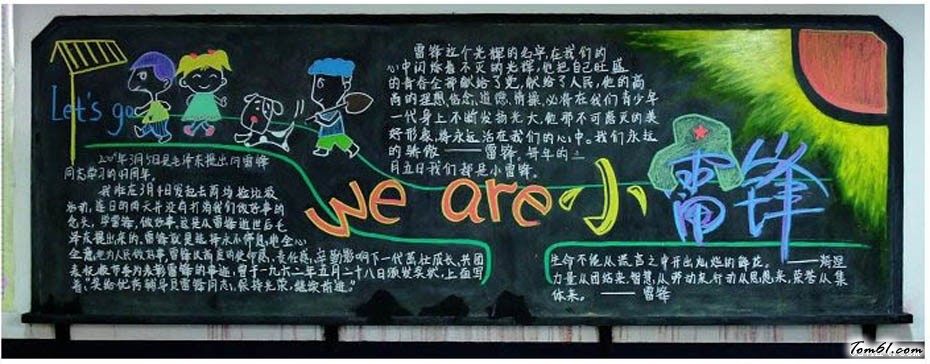 Let's go
雷锋这个光辉的名字,在我们的
心中闪烁着不灭的光辉,他把自己旺盛
的青春全部献给了党,献给了人民,他的高
尚的理想、信念、道德、情操,必将在我们青少年
一代身上不断发扬光大,他那不可磨灭的美
好形象将永远活在我们的心中。我们永远
的骄傲——雷锋。每年的三
月五日我们都是小雷锋。
年3月5日是毛泽东提出向雷锋
同志学习的 周年。
我班在3月4日发起去 捡垃圾
活动,连日的雨天并没有打消我们做好事的
念头,学雷锋,做好事,这是从雷锋逝世后毛
泽东提出来的,雷锋就是这样永不停息,他全心
全意 为人民做好事,雷锋 影响下一代茁壮成长,共团
表彰雷锋的事迹,曾于一九六二年五月二十八日颁发奖状,上面写
着"奖给优秀辅导员雷锋同志,保持光荣,继续前进。"
we are 小雷锋
生命不能从谎言之中开出灿烂的鲜花。——海涅
力量从团结来,智慧从劳动来,行动从思想来,荣誉从集
体来。——雷锋
Tom61.com